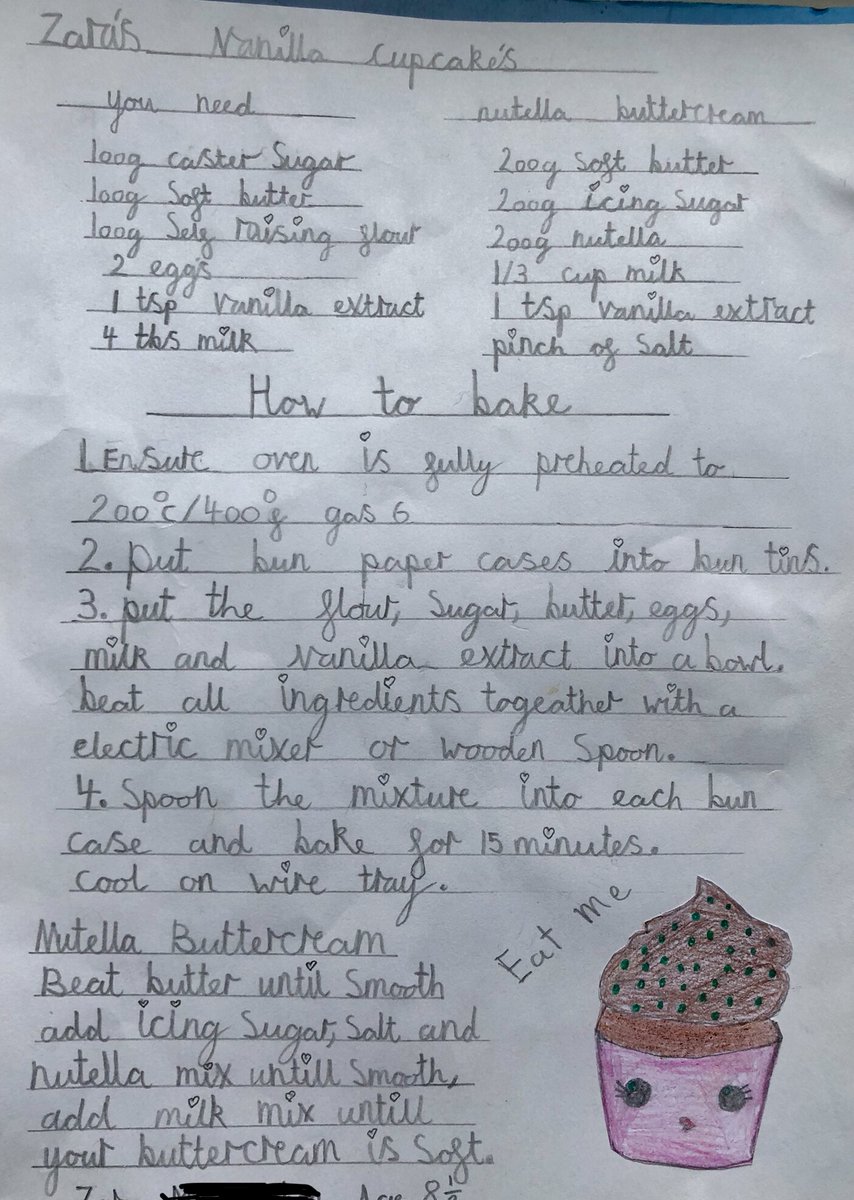 Zara's Vanilla Cupcake's
you need
100g caster Sugar
100g Soft butter
100g Self raising flour
2 eggs
1 tsp vanilla extract
4 tbs milk
nutella buttercream
200g Soft butter
200g icing Sugar
200g nutella
1/3 cup milk
1 tsp vanilla extract
pinch of Salt
How to bake
1. Ensure oven is fully preheated to
200°c/400°f gas 6
2. put bun paper cases into bun tins.
3. put the flour, Sugar, butter, eggs,
milk and vanilla extract into a bowl.
beat all ingredients togeather with a
electric mixer or wooden Spoon.
4. Spoon the mixture into each bun
case and bake for 15 minutes.
cool on wire tray.
Nutella Buttercream
Beat butter until Smooth
add icing Sugar, Salt and
nutella mix untill Smooth,
add milk mix untill
your buttercream is Soft.
Eat me
Age 8½